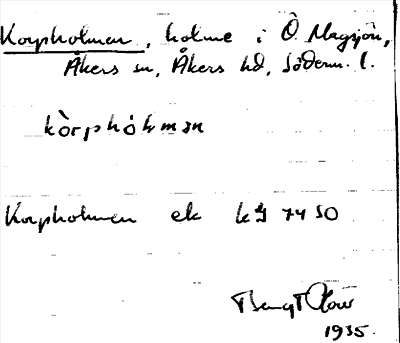 Korpholmen, holme i Ö Magsjön,
Åkers sn, Åkers hd, Söderm. l.
kòrphòlmən
Korpholmen ek kg 7450
Bengt
1935.